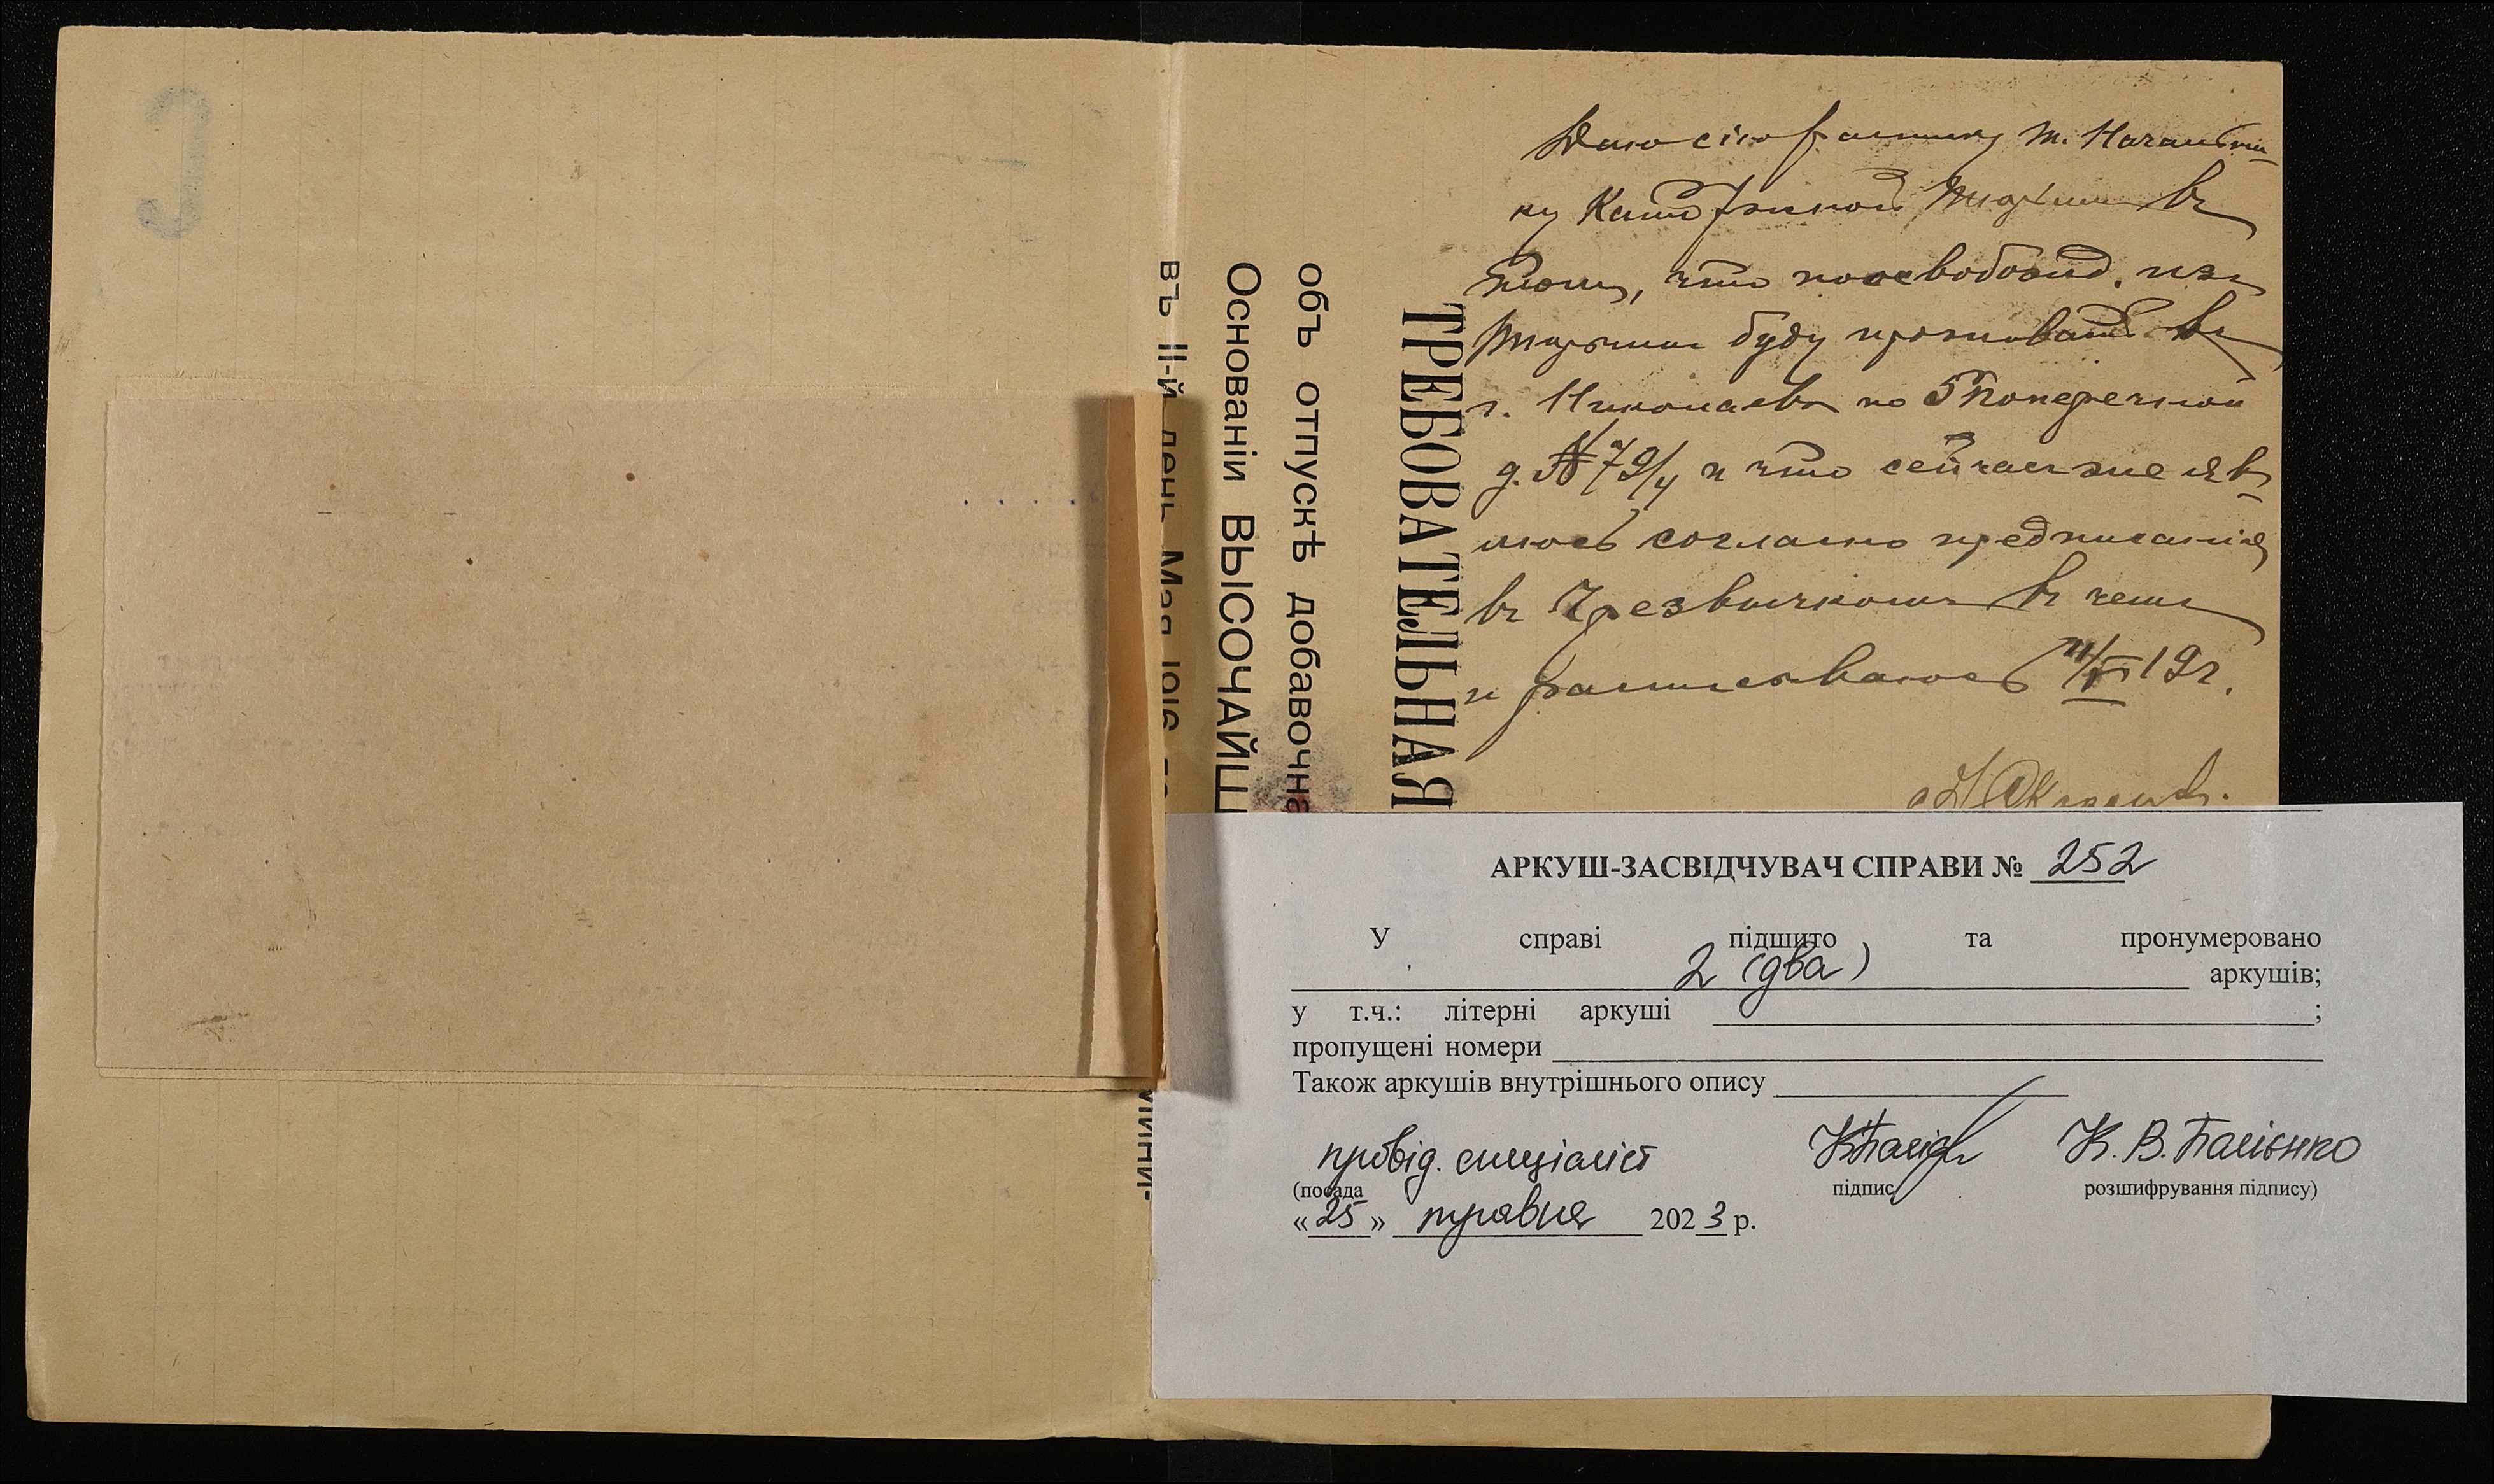 Даю сію расписку т. Начальни-
ку Каторжной Тюрьмы въ
томъ, что по освобожд. изъ
тюрьмы буду проживать въ
г. Николаевѣ по 5 Поперечной
д. № 79/4 и что сейчасъ же яв-
люсь согласно предписанія
въ Чрезвычкомъ въ чемъ
и расписываюсь 19 г.
ТРЕБОВАТЕЛЬНАЯ
объ отпускѣ добавочна
Основаніи ВЫСОЧАЙШ
въ II-й день Мая 1916
АРКУШ-ЗАСВІДЧУВАЧ СПРАВИ № 252
У справі підшито та пронумеровано
2 (два) аркушів;
у т.ч.: літерні аркуші ;
пропущені номери
Також аркушів внутрішнього опису
провід. спеціаліст К. В. Палієнко
(посада підпис розшифрування підпису)
«25» травня 2023 р.